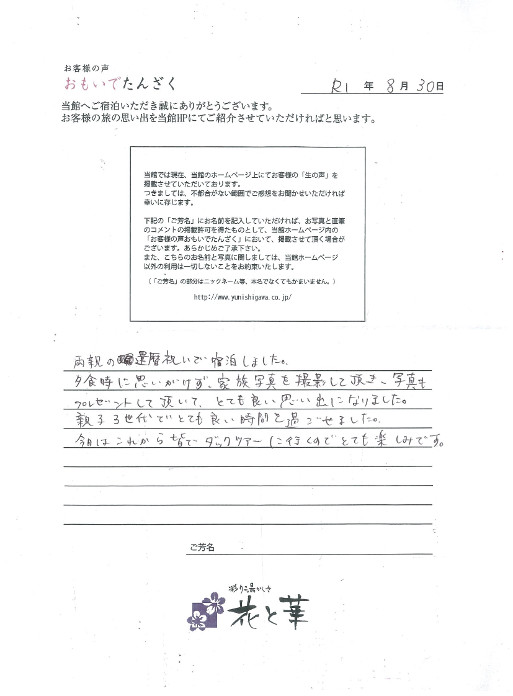 お客様の声
おもいでたんざく
R1 年 8 月 30 日
当館へご宿泊いただき誠にありがとうございます。
お客様の旅の思い出を当館HPにてご紹介させていただければと思います。
当館では現在、当館のホームページ上にてお客様の「生の声」を
掲載させていただいております。
つきましては、不都合がない範囲でご感想をお聞かせいただければ
幸いに存じます。
下記の「ご芳名」にお名前を記入していただければ、お写真と直筆
のコメントの掲載許可を得たものとして、当館ホームページ内の
「お客様の声おもいでたんざく」において、掲載させて頂く場合が
ございます。あらかじめご了承下さい。
また、こちらのお名前と写真に関しましては、当館ホームページ
以外の利用は一切しないことをお約束いたします。
(「ご芳名」の部分はニックネーム等、本名でなくてもかまいません。)
http://www.yunishigawa.co.jp/
両親の還暦祝いで宿泊しました。
夕食時に思いがけず、家族写真を撮影して頂き、写真も
プレゼントして頂いて、とても良い思い出になりました。
親子3世代でとても良い時間を過ごせました。
今日はこれから皆でダックツアーに行くのでとても楽しみです。
ご芳名
彩り湯かしき
花と華